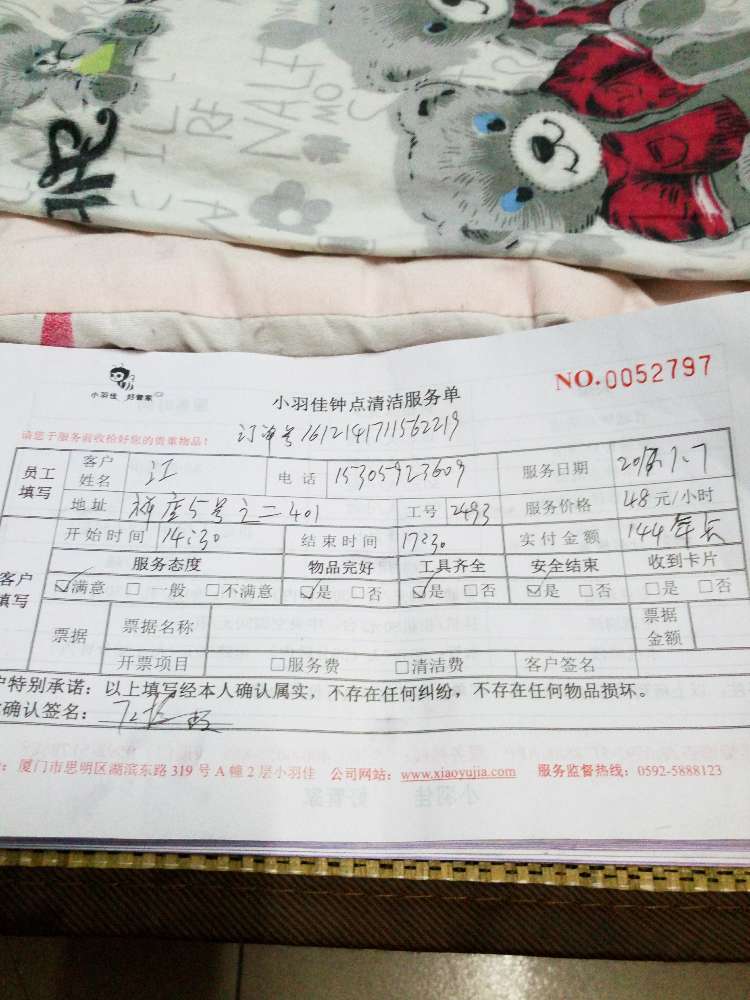 NO.0052797
小羽佳 好管家
小羽佳钟点清洁服务单
订单号1612141711562219
请您于服务前收检好您的贵重物品!
员工填写 客户姓名 江 电话 15305923609 服务日期
地址 5号之二401 工号 2493 服务价格 48元/小时
开始时间 14:30 结束时间 17:30 实付金额 144
客户填写 服务态度 物品完好 工具齐全 安全结束 收到卡片
☑满意 □一般 □不满意 ☑是 □否 ☑是 □否 ☑是 □否 □是 □否
票据 票据名称 票据金额
开票项目 □服务费 □清洁费 客户签名
户特别承诺:以上填写经本人确认属实,不存在任何纠纷,不存在任何物品损坏。
确认签名:
:厦门市思明区湖滨东路 319 号 A 幢 2 层小羽佳 公司网站:www.xiaoyujia.com 服务监督热线:0592-5888123